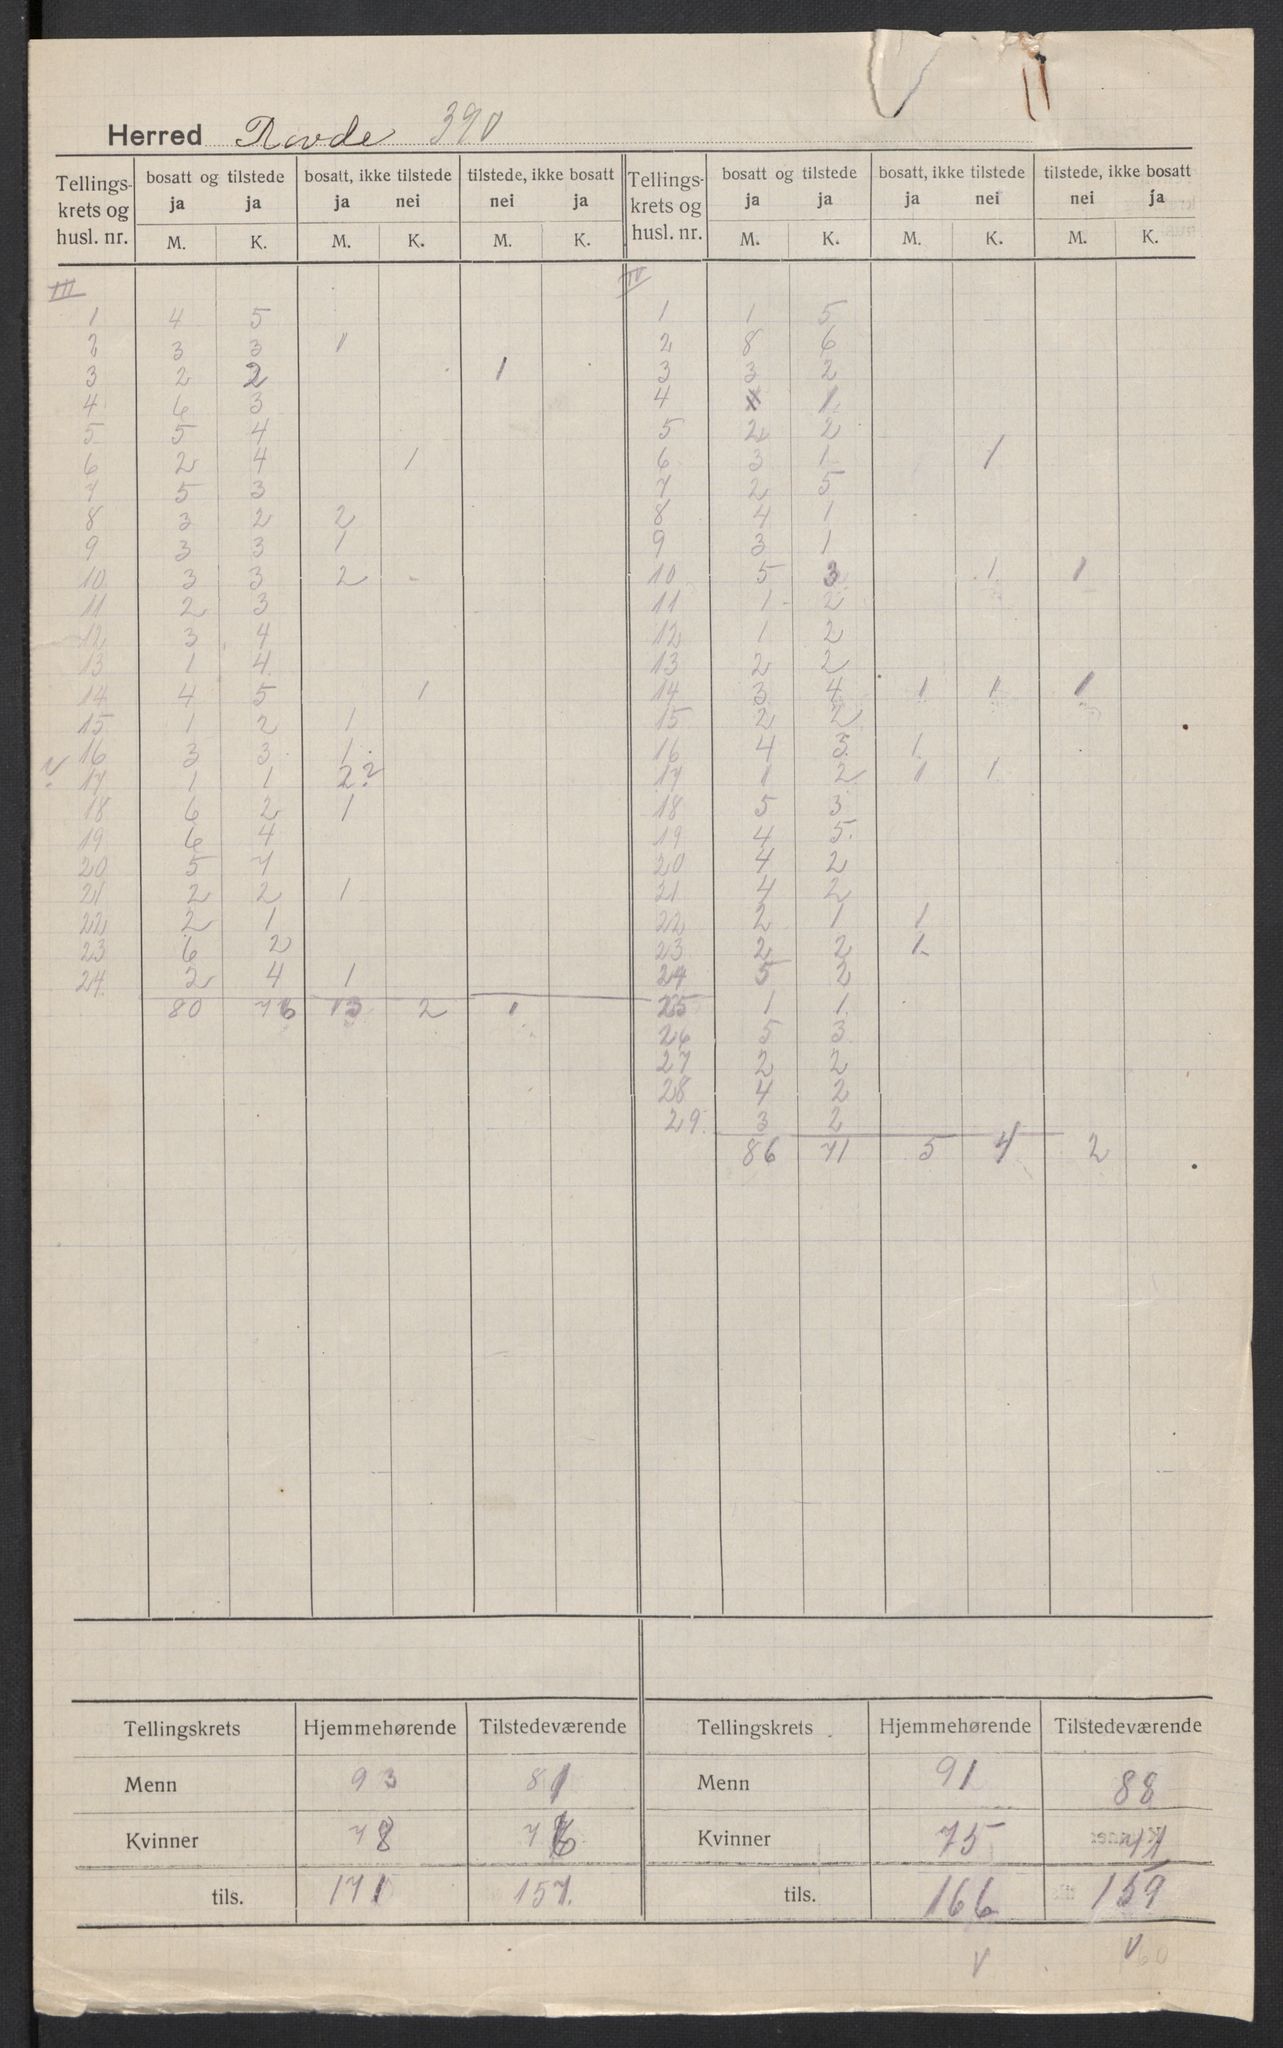 Herred Rovde 390
Tellings-krets og husl. nr. | bosatt og tilstede ja ja M. K. | bosatt, ikke tilstede ja nei M. K. | tilstede, ikke bosatt nei ja M. K. | Tellings-krets og husl. nr. | bosatt og tilstede ja ja M. K. | bosatt, ikke tilstede ja nei M. K. | tilstede, ikke bosatt nei ja M. K.
III
1 4 5
2 3 3 1
3 2 2 1
4 6 3
5 5 4
6 2 4 1
7 5 3
8 3 2 2
9 3 3 1
10 3 3 2
11 2 3
12 3 4
13 1 4
14 4 5 1
15 1 2 1
16 3 3 1
? 17 1 1 2?
18 6 2 1
19 6 4
20 5 7
21 2 2 1
22 2 1
23 6 2
24 2 4 1
80 76 13 2 1
IV
1 1 5
2 8 6
3 3 2
4 1
5 2 2
6 3 1 1
7 2 5
8 4 1
9 3 1
10 5 3 1 1
11 1 2
12 1 2
13 2 2
14 3 4 1 1 1
15 2 2
16 4 3 1
17 1 2 1 1
18 5 3
19 4 5
20 4 2
21 4 2
22 2 1 1
23 2 2 1
24 5 2
25 1 1
26 5 3
27 2 2
28 4 2
29 3 2
86 71 5 4 2
Tellingskrets Hjemmehørende Tilstedeværende
Menn 93 81
Kvinner 78 76
tils. 171 157
Tellingskrets Hjemmehørende Tilstedeværende
Menn 91 88
Kvinner 75 71
tils. 166 159